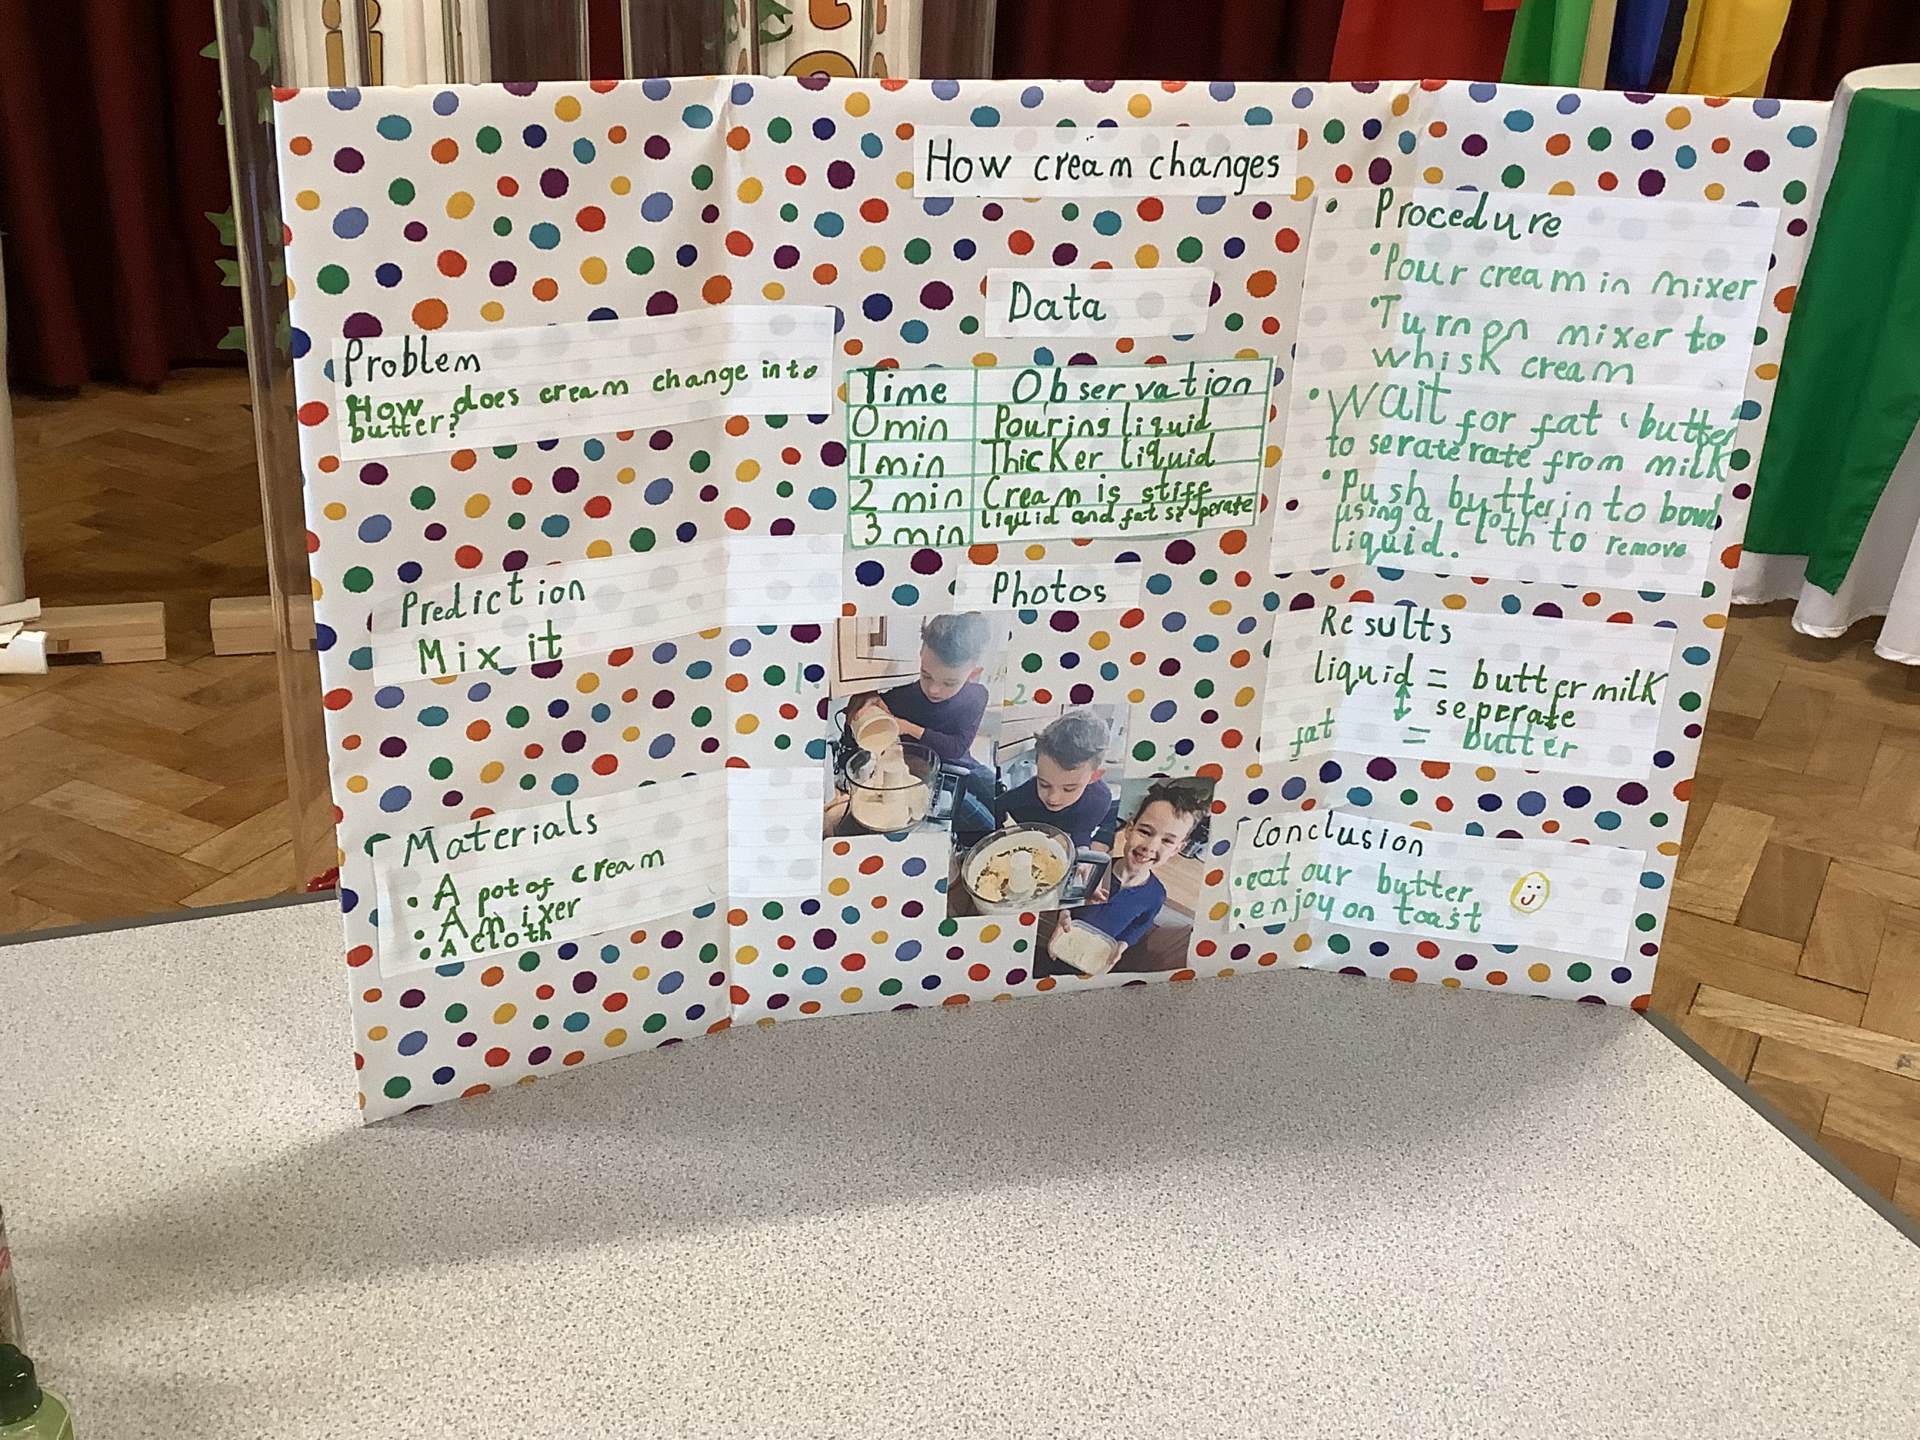 How cream changes
Problem
How does cream change into
butter?
Prediction
Mix it
Materials
• A pot of cream
• A mixer
• A cloth
Data
Time Observation
0 min Pouring liquid
1 min Thicker liquid
2 min Cream is stiff
3 min liquid and fat seperate
Photos
1.
2
3.
• Procedure
• Pour cream in mixer
• Turn on mixer to
whisk cream
• Wait for fat 'butter'
to seraterate from milk
• Push butter in to bowl
using a cloth to remove
liquid.
Results
liquid = butter milk
↕ seperate
fat = butter
Conclusion
• eat our butter
• enjoy on toast